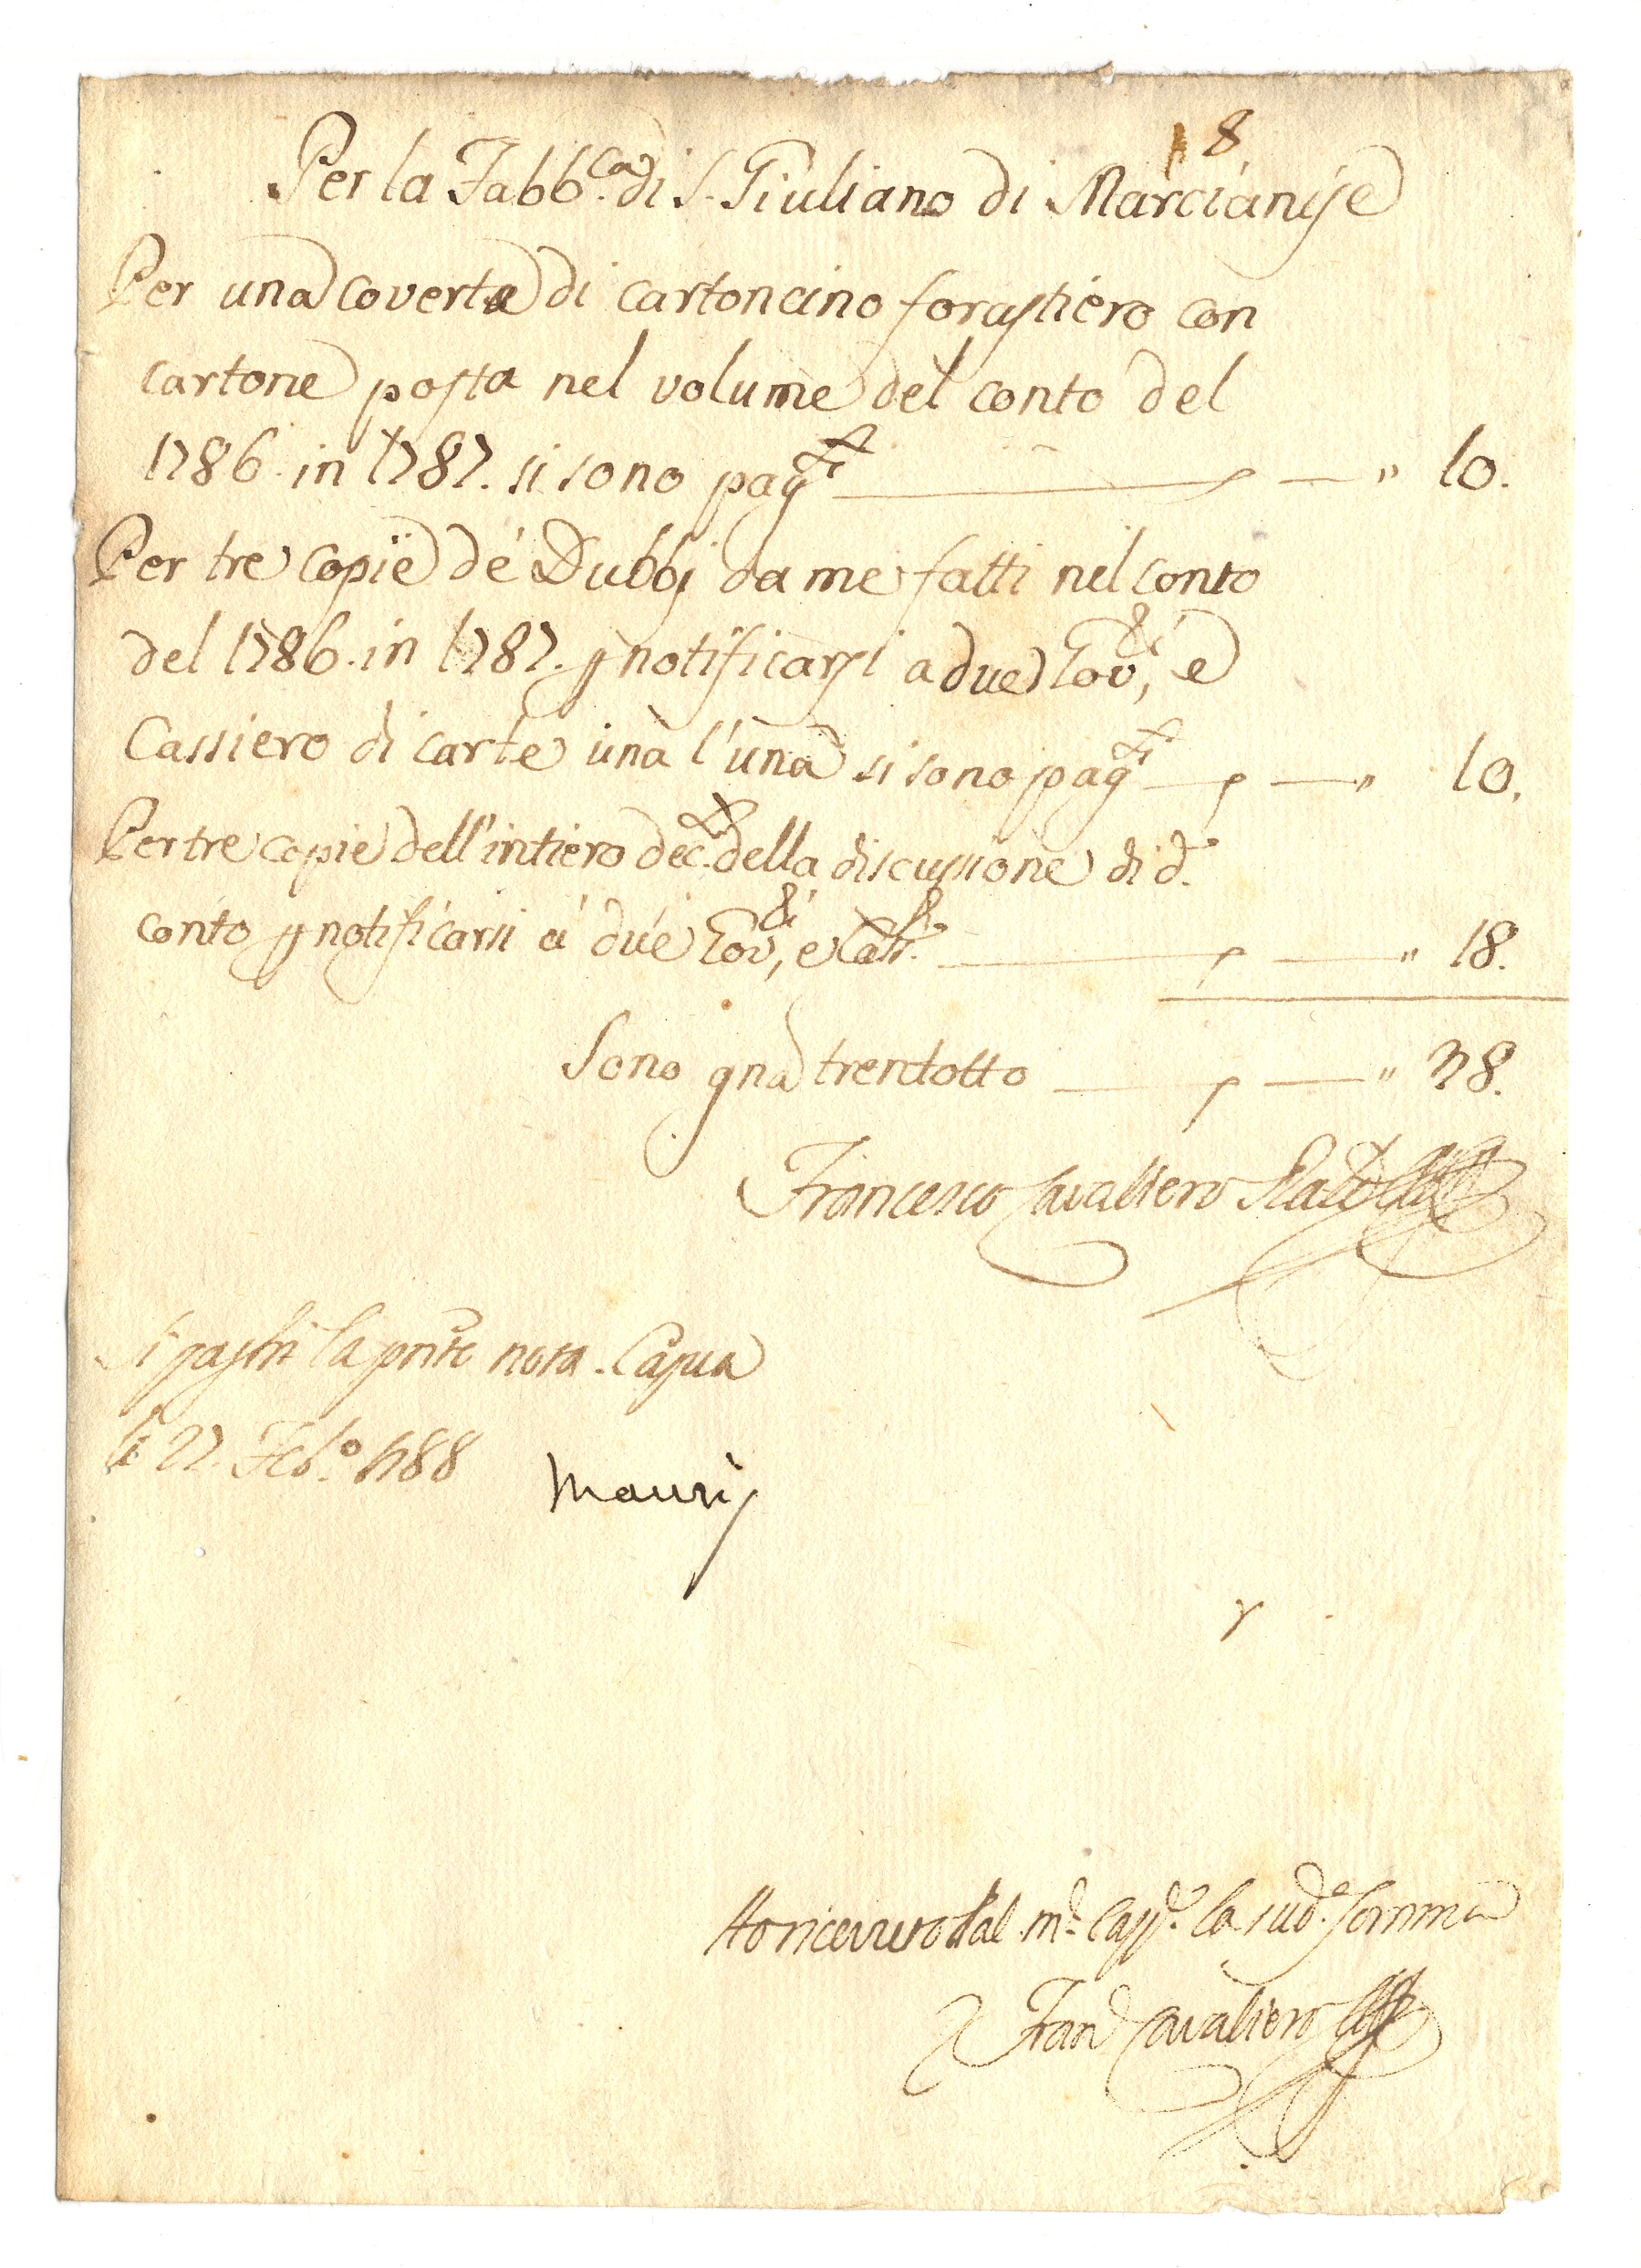 8
Per la Fabb.ca di S. Giuliano di Marcianise
Per una coverta di cartoncino forastiero con
cartone posta nel volume del conto del
1786. in 1787. si sono pag.ti — — " 10.
Per tre copie de' Dubbj da me fatti nel conto
del 1786. in 1787. p notificarsi a due Gov.ri, e
Cassiero di carte una l'una si sono pag.ti — — " 10.
Per tre copie dell'intiero dec.to della discussione di d.o
conto p notificarsi a due Gov.ri, e Cass.ro — — " 18.
Sono gna trentotto — — " 38.
Francesco Cavaliero
Si paghi la pnte nota. Capua
li 27. Feb.o 1788
Maurj
Ho ricevuto dal m.co Cass.ro la sud.a somma
Fran.co Cavaliero